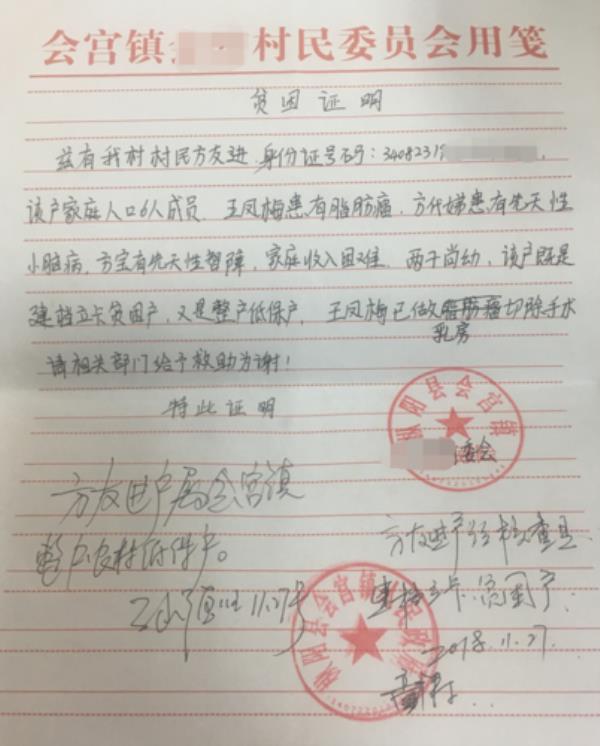 会宫镇 村民委员会用笺
贫困证明
兹有我村村民方友进 身份证号码：3408231
该户家庭人口6人成员，王凤梅患有脂肪瘤，方代娣患有先天性
心脏病，方宝有先天性智障，家庭收入困难，两子尚幼，该户既是
建档立卡贫困户，又是整户低保户，王凤梅已做脂肪瘤切除手术
乳房
请相关部门给予救助为谢！
特此证明
枞阳县会宫镇
委会
方友进户属会宫镇
整户农村低保户。
11.27号
方友进户经核查是
建档立卡贫困户.
2018.11.27.
枞阳县会宫镇人民政府